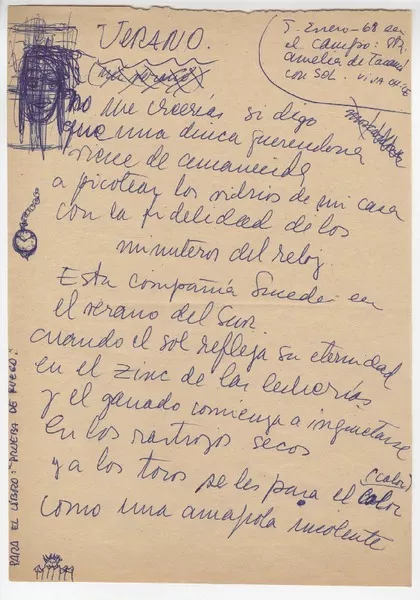 VERANO.
5. Enero-68 en
el campo:
Amelia de
con SOL. VIVA CHILE
no me creerías si digo
que una diuca querendona
viene de amanecida
a picotear los vidrios de mi casa
con la fidelidad de los
minuteros del reloj.
Esta compañía sucede en
el verano del Sur.
cuando el sol refleja su eternidad
en el zinc de las lecherías
y el ganado comienza a inquietarse
en los rastrojos secos
y a los toros se les para el calor
(calor)
como una amapola insolente
PARA EL LIBRO: "PRUEBA DE FUEGO".